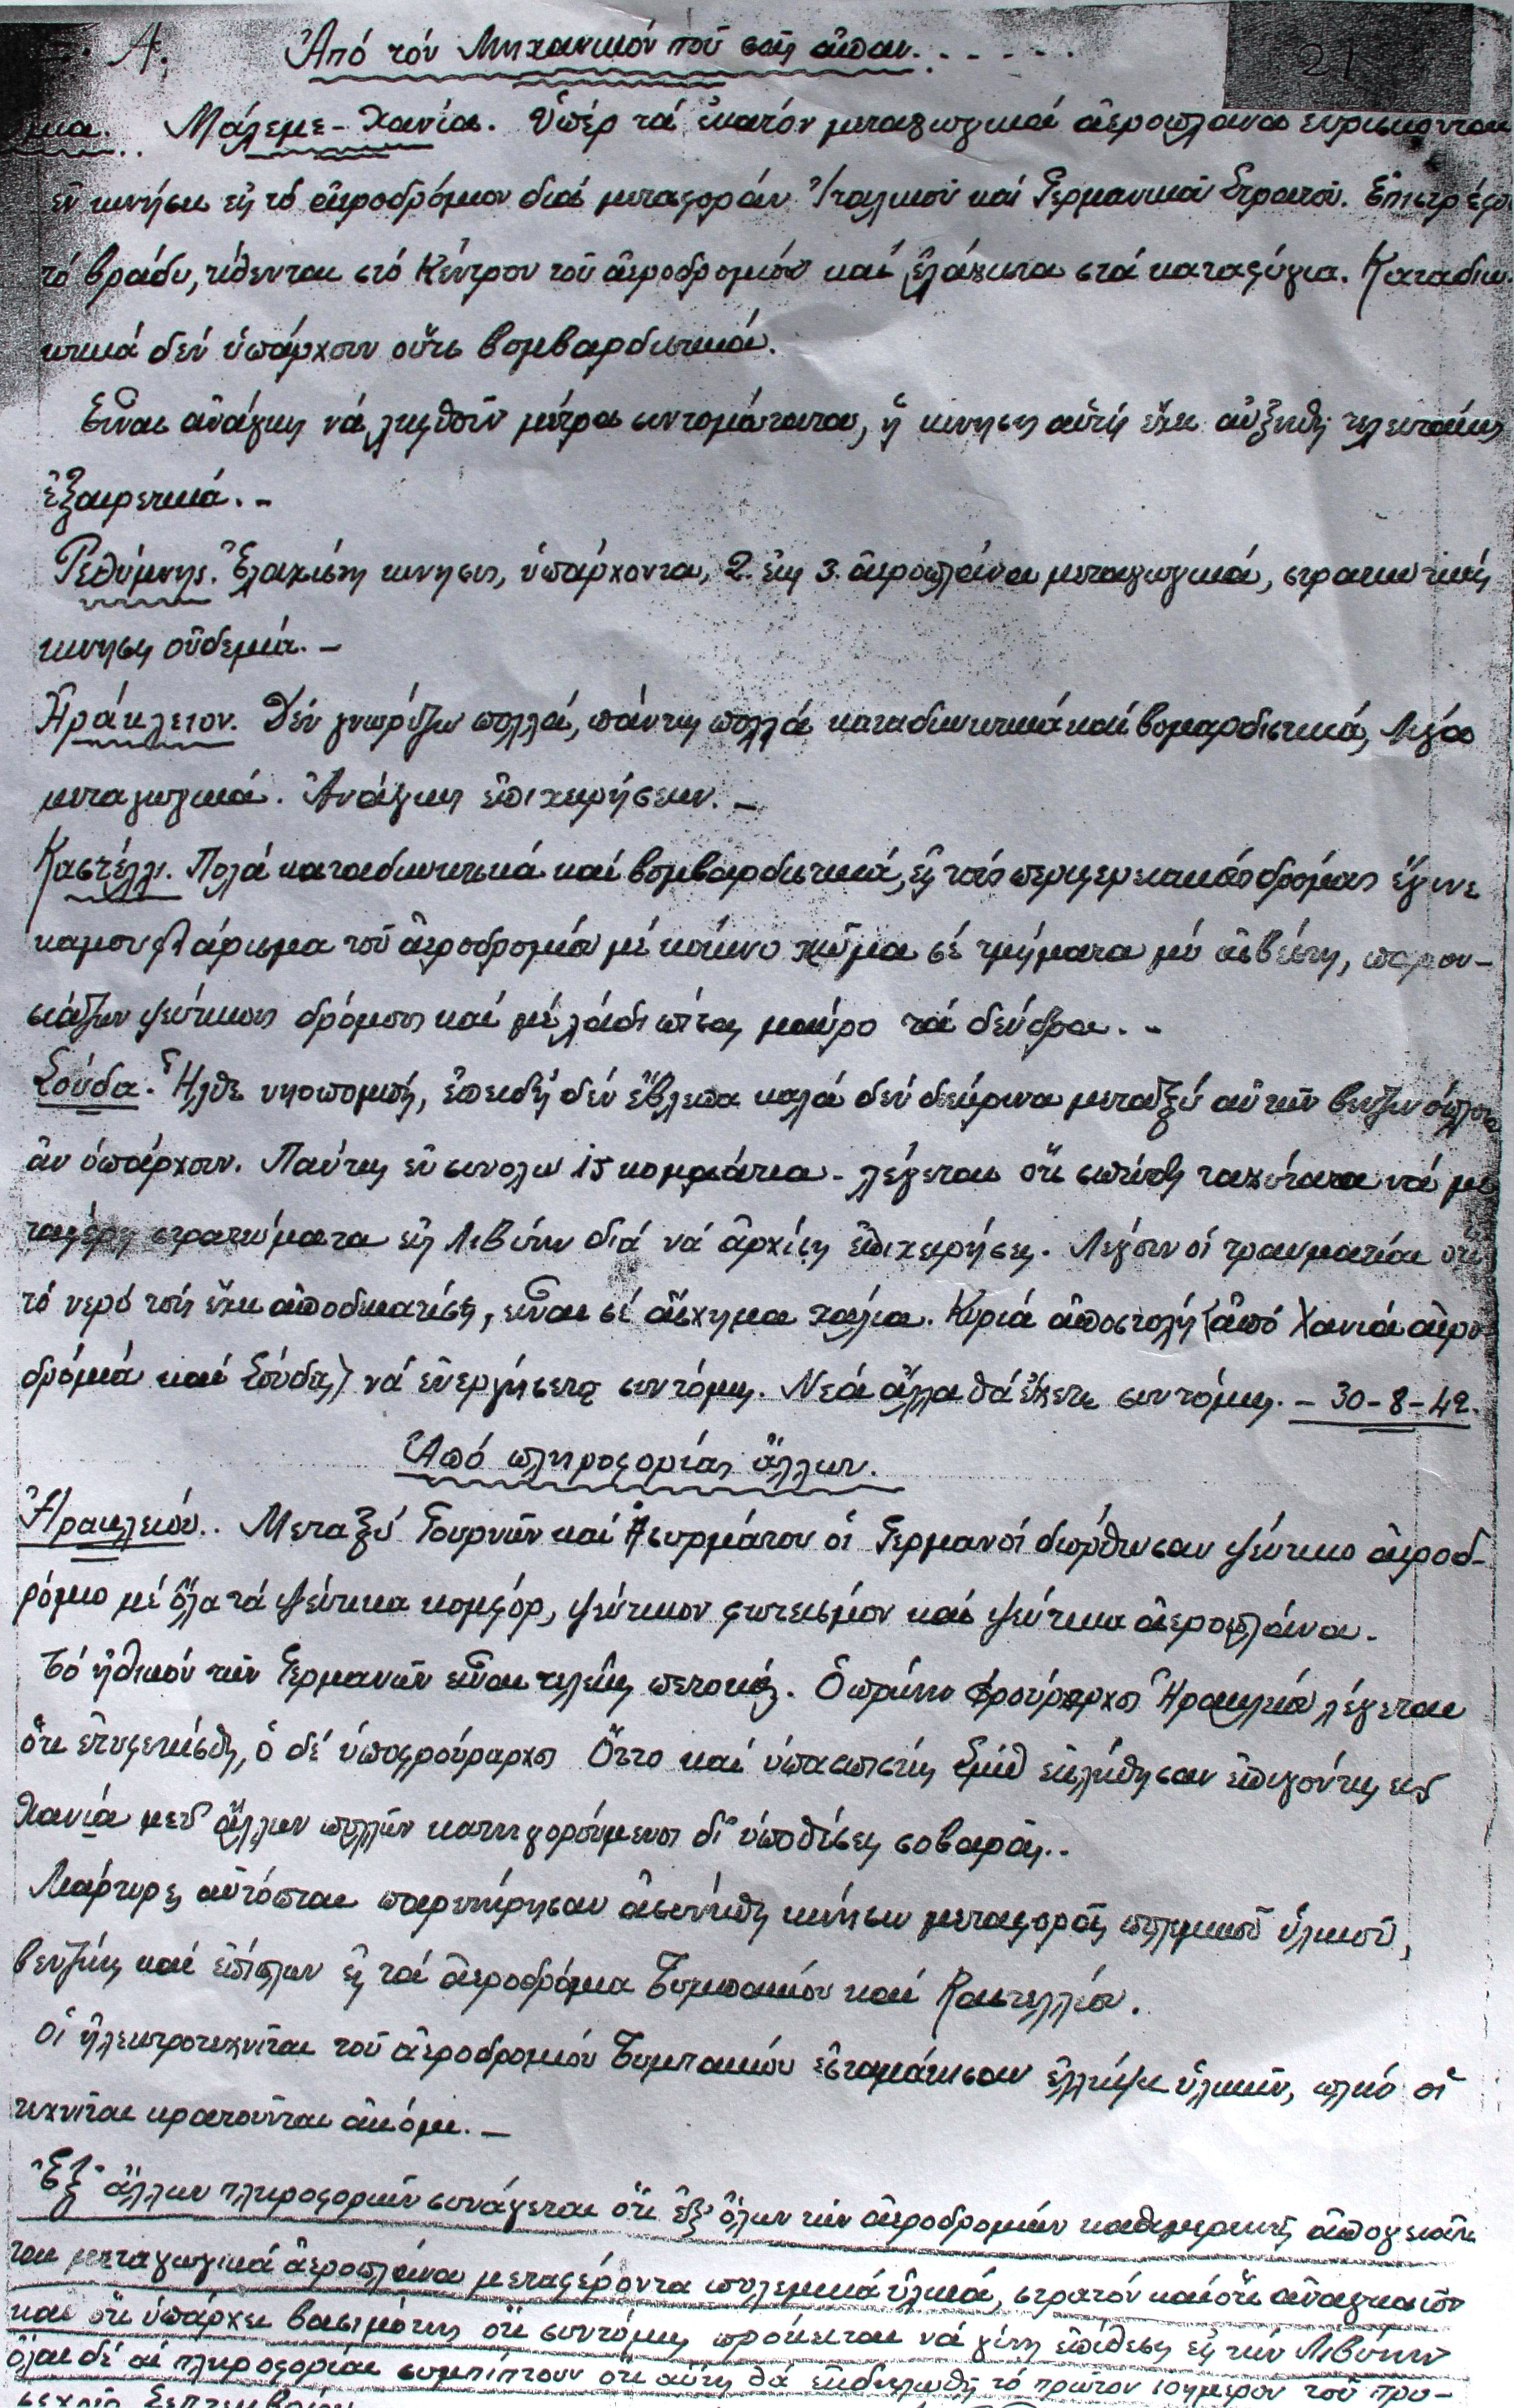 Α. Ἀπό τόν Μηχανικόν πού σᾶς εἶπαν. . . . . . .
21
μια. Μάλεμε - Χανίων. Ὑπέρ τά ἑκατόν μεταγωγικά ἀεροπλάνα εὑρίσκονται
ἐν κινήσει εἰς τό ἀεροδρόμιον διά μεταφοράν Ἰταλικοῦ καί Γερμανικοῦ Στρατοῦ. Ἐπιστρέφο
τό βράδυ, τίθενται στό Κέντρον τοῦ ἀεροδρομίου καί ἐλάχιστα στά καταφύγια. Καταδιω-
κτικά δέν ὑπάρχουν οὔτε βομβαρδιστικά.
Εἶναι ἀνάγκη νά ληφθοῦν μέτρα συντομώτατα, ἡ κίνησις αὐτή ἔχει αὐξηθῆ τελευταίως
ἐξαιρετικά. -
Ρεθύμνης. Ἐλαχίστη κίνησις, ὑπάρχοντα, 2 ἕως 3. ἀεροπλάνα μεταγωγικά, στρατιωτική
κίνησις οὐδεμία. -
Ἡράκλειον. Δέν γνωρίζω πολλά, πάντως πολλά καταδιωκτικά καί βομαρδιστικά, λίγα
μεταγωγικά. Ἀνάγκη ἐπιχειρήσεων. -
Καστέλλι. Πολά καταδιωκτικά καί βομβαρδιστικά, εἰς τούς περιφερειακούς δρόμους ἔγινε
καμουφλάρισμα τοῦ ἀεροδρομίου μέ κόκινο χῶμα σέ τμήματα μέ ἀσβέστη, παρου-
σιάζων ψεύτικους δρόμους καί μέ λάδι πίσας μαύρο τά δένδρα. -
Σούδα. Ἦλθε νηοπομπή, ἐπειδή δέν ἔβλεπα καλά δέν διέκρινα μεταξύ αὐτῶν βενζινόπλοια
ἄν ὑπάρχουν. Πάντως ἐν συνόλω 15 κομμάτια - λέγεται ὅτι σπεύδει ταχύτατα νά με
ταφέρη στρατεύματα εἰς Λιβύην διά νά ἀρχίση ἐπιχειρήσεις. Λέγουν οἱ τραυματίαι ὅτι
τό νερό τούς ἔχει ἀποδεκατίση, εἶναι σέ ἄσχημα χάλια. Κυρία ἀποστολή (ἀπό Χανιά ἀερο-
δρόμια καί Σούδας) νά ἐνεργήσετε συντόμως. Νέα ἄλλα θά ἔχετε συντόμως. - 30-8-42.
Ἀπό πληροφορίας ἄλλων.
Ἡρακλείου. . Μεταξύ Γουρνῶν καί οἱ Γερμανοί διόρθωσαν ψεύτικο ἀεροδ-
ρόμιο μέ ὅλα τά ψεύτικα κομφόρ, ψεύτικον φωτισμόν καί ψεύτικα ἀεροπλάνα. -
Τό ἠθικόν τῶν Γερμανῶν εἶναι τελείως πεσμένο. Ὁ πρώην Φρούραρχος Ἡρακλείου λέγεται
ὅτι ἐτυφεκίσθη, ὁ δέ ὑποφρούραρχος Ὄττο καί ὑπασπιστής Σμίθ ἐκλήθησαν ἐπειγόντως εἰς
Χανιά μετ' ἄλλων πολλῶν κατηγορούμενοι δι' ὑποθέσεις σοβαράς. .
Μάρτυρες αὐτόπται παρετήρησαν ἀσυνήθη κίνησιν μεταφορᾶς πολεμικοῦ ὑλικοῦ,
βενζίνης καί ἐπίπλων εἰς τά ἀεροδρόμια Τυμπακίου καί Καστελλίου.
Οἱ ἠλεκτροτεχνῖται τοῦ ἀεροδρομίου Τυμπακίου ἐσταμάτησαν ἐλλείψει ὑλικῶν, πλήν οἱ
τεχνῖται κρατοῦνται ἀκόμη. -
Ἐξ' ἄλλων πληροφοριῶν συνάγεται ὅτι ἐξ' ὅλων τῶν ἀεροδρομίων καθημερινῶς ἀπογειών
ται μεταγωγικά ἀεροπλάνα μεταφέροντα πολεμικά ὑλικά, στρατόν καί
καί ὅτι ὑπάρχει βασιμότης ὅτι συντόμως πρόκειται νά γίνη ἐπίθεσις εἰς τήν Λιβύην
ὅλαι δέ αἱ πληροφορίαι συμπίπτουν ὅτι αὕτη θά ἐκδηλωθῆ τό πρῶτον 10ήμερον τοῦ προ-
σεχοῦς Σεπτεμβρίου